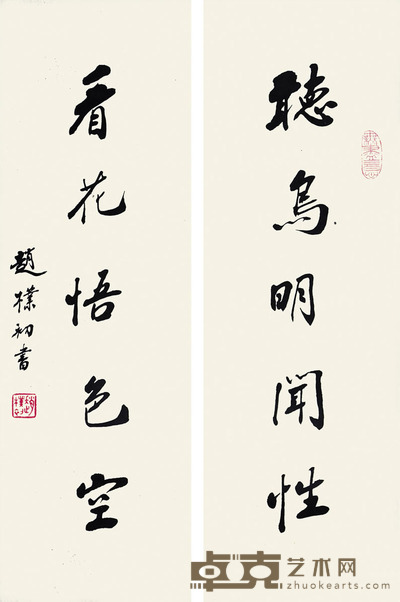 聽鳥明聞性
看花悟色空
趙樸初書
卓克艺术网
zhuokearts.com